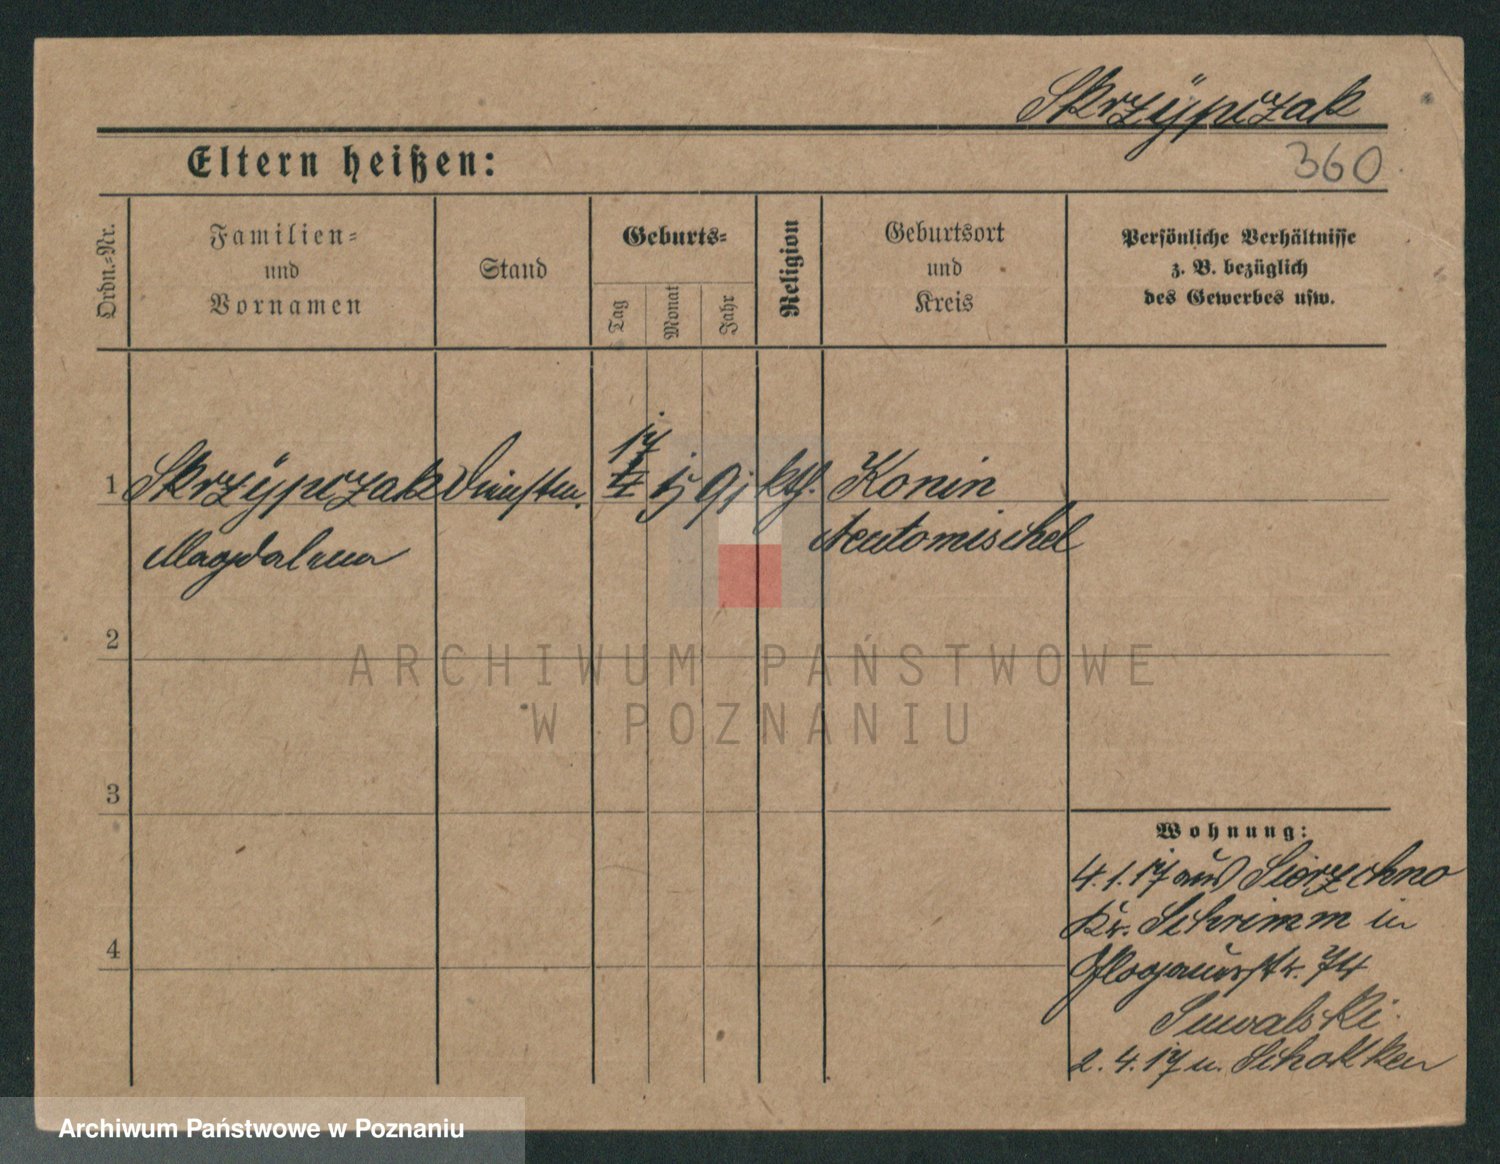 Skrzÿpczak
Eltern heißen:
360
Ordn.-Nr.
Familien-
und
Vornamen
Stand
Geburts-
Tag
Monat
Jahr
Religion
Geburtsort
und
Kreis
Persönliche Verhältnisse
z. B. bezüglich
des Gewerbes usw.
17
1 Skrzÿpczak 91 kth. Konin
Magdalena Neutomischel
2
ARCHIWUM PAŃSTWOWE
W POZNANIU
3
Wohnung:
4.1.17 aus
Kr. Schrimm in
4
Glogauerstr. 74
Suwalski
2.4.17 n. Schokken
Archiwum Państwowe w Poznaniu